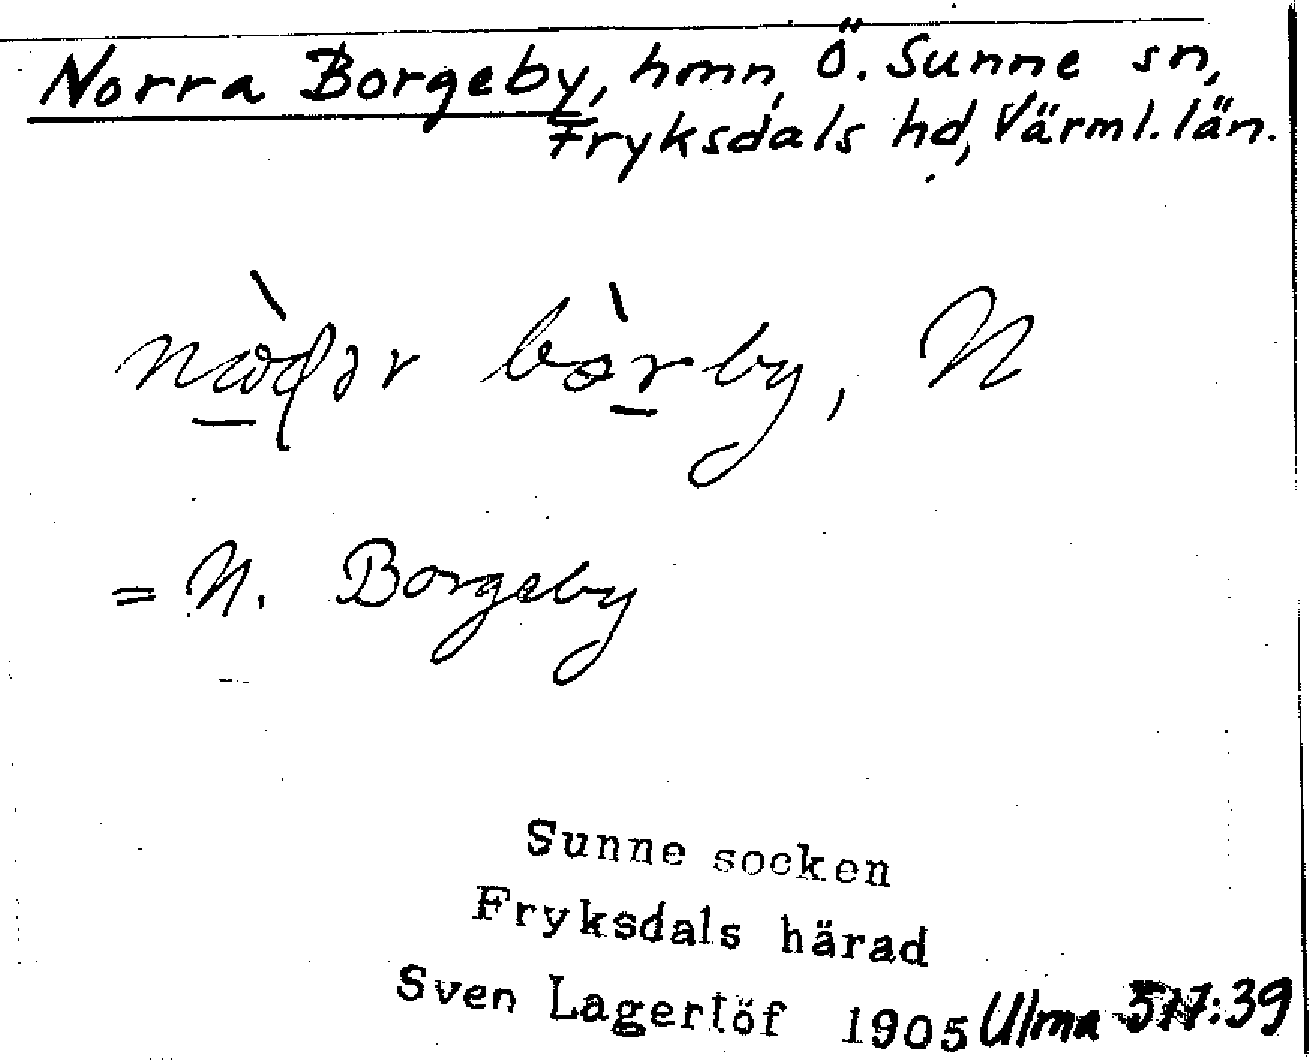 Norra Borgeby, hmn, Ö. Sunne sn,
Fryksdals hd, Värml. län.
bo̊rby, N
= N. Borgeby
Sunne socken
Fryksdals härad
Sven Lagerlöf 1905 Ulma :39